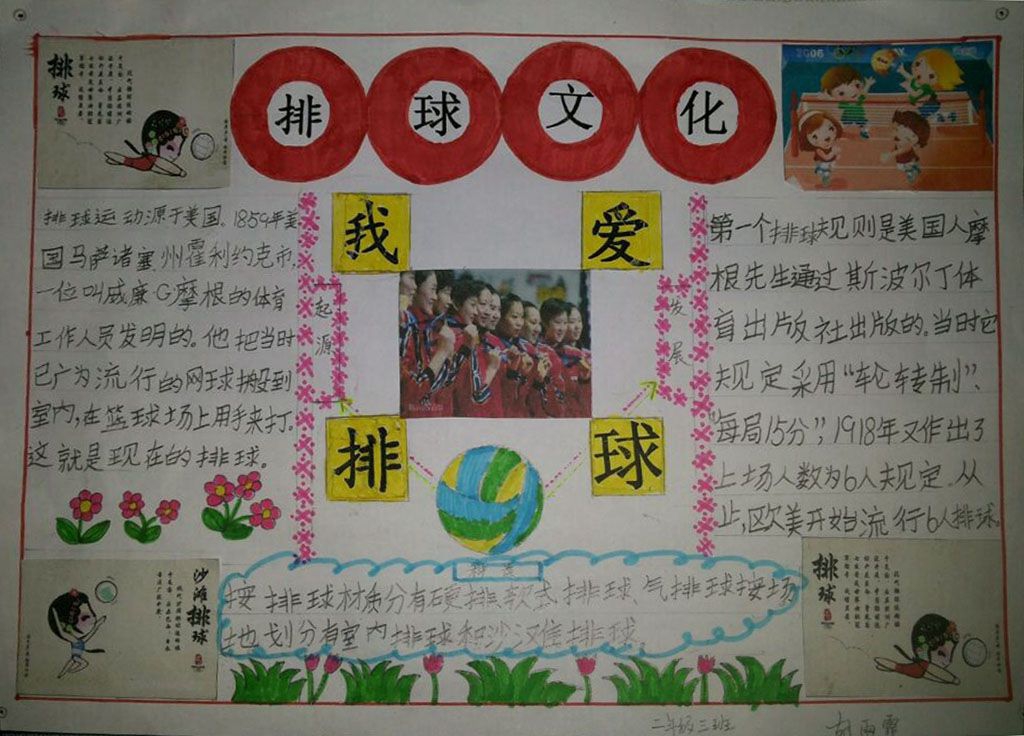 排球
排球文化
2006
排球运动源于美国。1859年美
国马萨诸塞州霍利约克市,
一位叫威廉·G摩根的体育
工作人员发明的。他把当时
已广为流行的网球搬到
室内,在篮球场上用手来打。
这就是现在的排球。
起源
我爱
排球
发展
第一个排球规则是美国人摩
根先生通过斯波尔丁体
育出版社出版的。当时它
规定采用“轮转制”、
“每局15分”,1918年又作出了
上场人数为6人规定。从
止,欧美开始流行6人排球。
沙滩排球
按排球材质分有硬排、软式排球、气排球按场
地划分有室内排球和沙滩排球。
排球
二年级三班